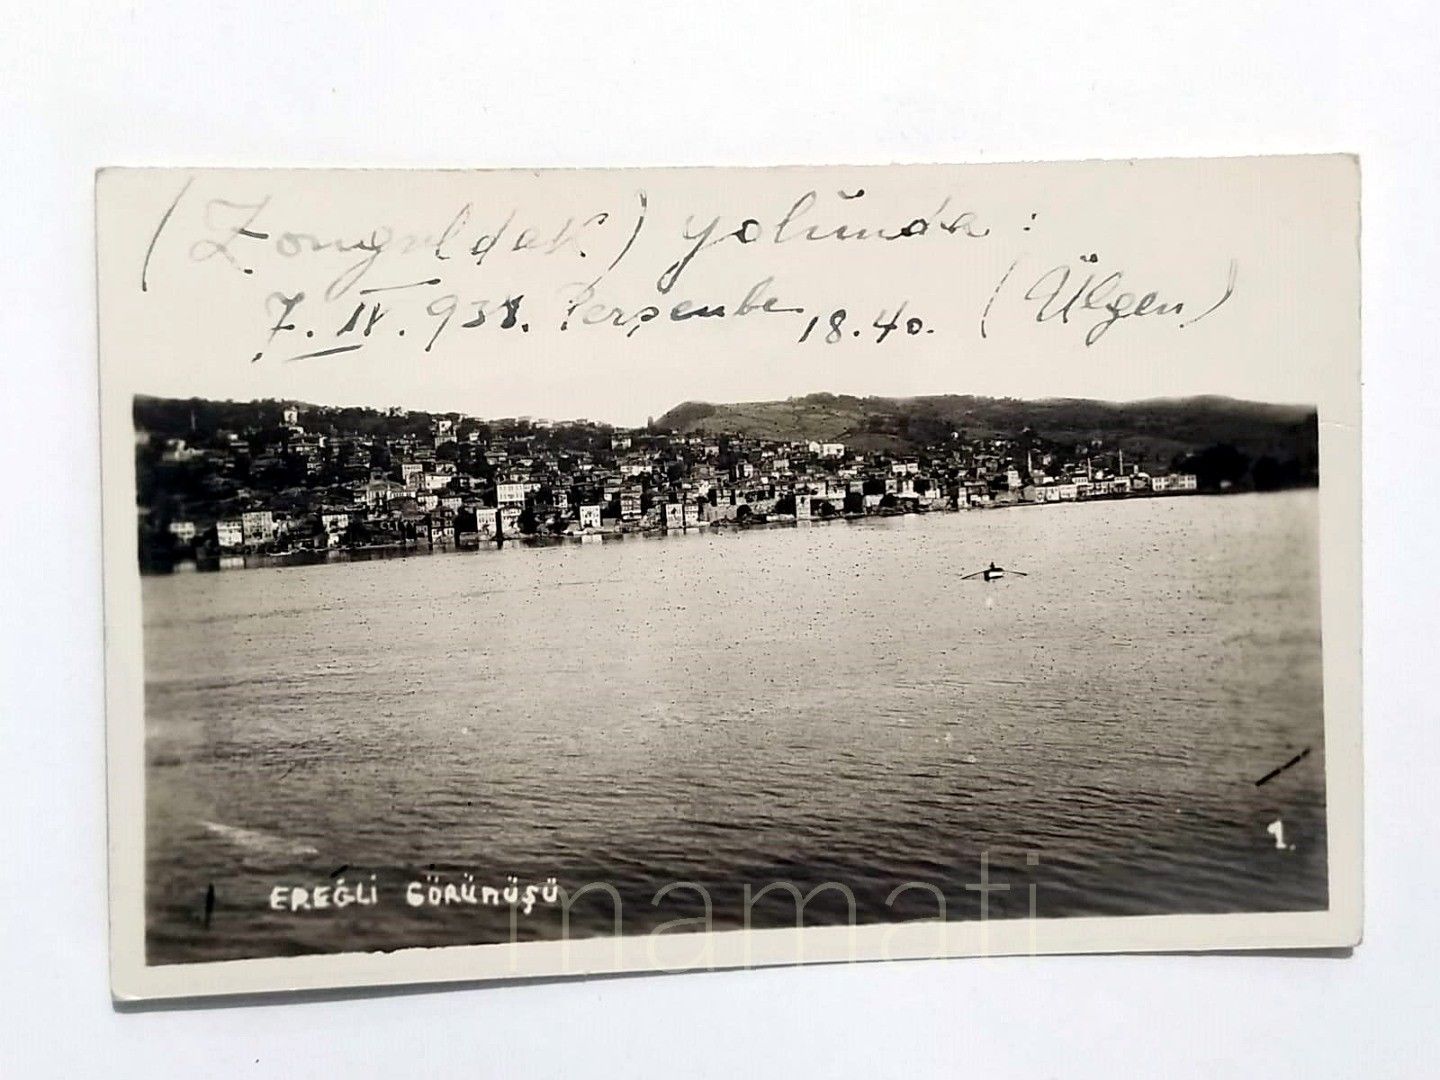 (Zonguldak) yolunda :
7. IV. 938. Perşenbe 18.40. (Ülgen)
1.
EREĞLİ GÖRÜNÜŞÜ
mamati